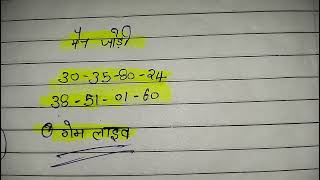 मैन जोड़ी
30-35-80-24
38-51-01-60
गेम लाइव